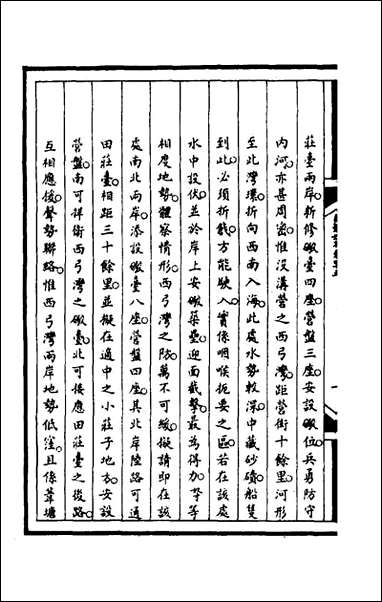 莊臺兩岸新修礮臺四座營盤三座安設礮位兵勇防守
內河亦甚周密惟沒溝營之西弓灣距營街十餘里河形
至此灣環折向西南入海此處水勢較深中藏砂磧船隻
到此必須折戧方能駛入實係咽喉扼要之區若在該處
水中投伏並於岸上安礮築壘迎面截擊最為得力擬等
相度地勢體察情形西弓灣之防萬不可緩擬請即在該
處南北兩岸添設礮臺八座營盤四座其北岸陸路可通
田莊臺相距三十餘里並擬在適中之小莊子地方安設
營盤南可祥衛西弓灣之礮臺北可接應田莊臺之後路
互相應援聲勢聯絡惟西弓灣兩岸地勢低窪且係葦塘